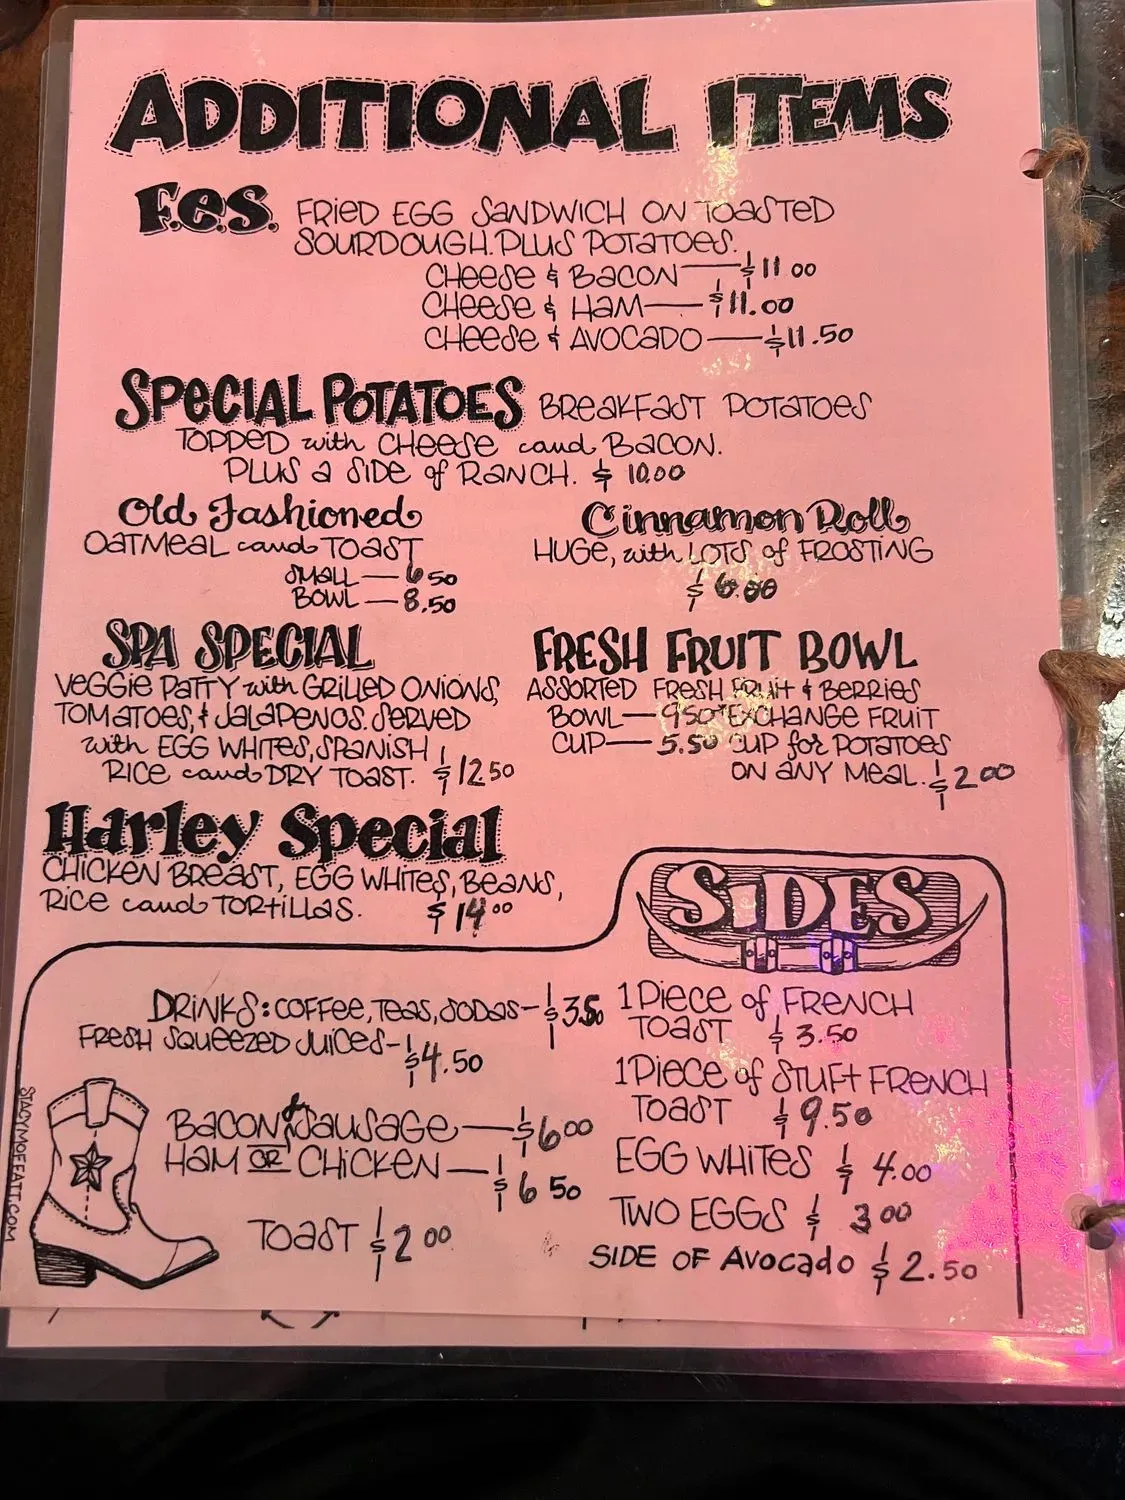 ADDITIONAL ITEMS
F.e.S. FRIED EGG SANDWICH ON TOASTED
SOURDOUGH. PLUS POTATOES.
CHEESE & BACON — $11 00
CHEESE & HAM — $11.00
CHEESE & AVOCADO — $11.50
SPECIAL POTATOES BREAKFAST POTATOES
TOPPED with CHEESE and BACON.
PLUS a SIDE of RANCH. $ 10.00
Old Fashioned
OATMEAL and TOAST
SMALL — 6 50
BOWL — 8.50
Cinnamon Roll
HUGE, with LOTS of FROSTING
$ 6.00
SPA SPECIAL
VEGGIE PATTY with GRILLED ONIONS,
TOMATOES, & JALAPENOS. SERVED
with EGG WHITES, SPANISH
RICE and DRY TOAST. $ 12.50
FRESH FRUIT BOWL
ASSORTED FRESH FRUIT & BERRIES
BOWL — 9 50 *EXCHANGE FRUIT
CUP — 5.50 CUP for POTATOES
ON ANY MEAL. $ 2 00
Harley Special
CHICKEN BREAST, EGG WHITES, BEANS,
RICE and TORTILLAS. $ 14 00
SIDES
DRINKS: COFFEE, TEAS, SODAS — $
FRESH SQUEEZED JUICES — $4.50
BACON & SAUSAGE — $6 00
HAM OR CHICKEN — $ 6 50
TOAST $ 2 00
1 PIECE of FRENCH
TOAST $ 3.50
1 PIECE of STUFT FRENCH
TOAST $ 9.50
EGG WHITES $ 4.00
TWO EGGS $ 3 00
SIDE OF Avocado $ 2.50
STACYMOFFATT.COM